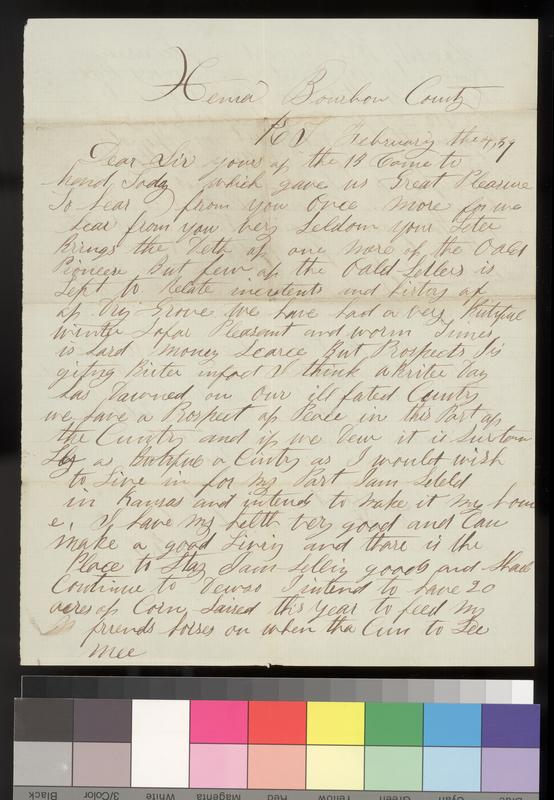 Bourbon County
K T February the 4, 59
Dear Sir yours of the 18 Come to
hand today which gave us Great Pleasure
To hear from you once more for we
hear from you very Seldom Your Leter
Brings the Deth of one more of the Oald
Pioneers But few of the Oald Setlers is
Left to Relate incidents and history of
of Dry Grove we have had a very Butiful
winter Sofar Pleasant and worm Times
is hard money Scarce But Prospects Is
giting Biter infact I think a Briter Day
has Dawned on Our ill fated County
we have a Prospect of Peace in this Part of
the Cuntry and if we Dew it is Surtain
as Butiful a Cuntry as I would wish
to Live in for my Part I am Seteld
in Kansas and intend to make it my hom
e, I have my helth very good and Can
make a good Livin and thare is the
Place to Stay I am Sellin goods and Shall
Continue to Dewso I intend to have 20
acres of Corn Raised this Year to feed my
friends horses on when tha Cum to See
Mee
Black
3/Color
White
Magenta
Red
Yellow
Green
Cyan
Blue